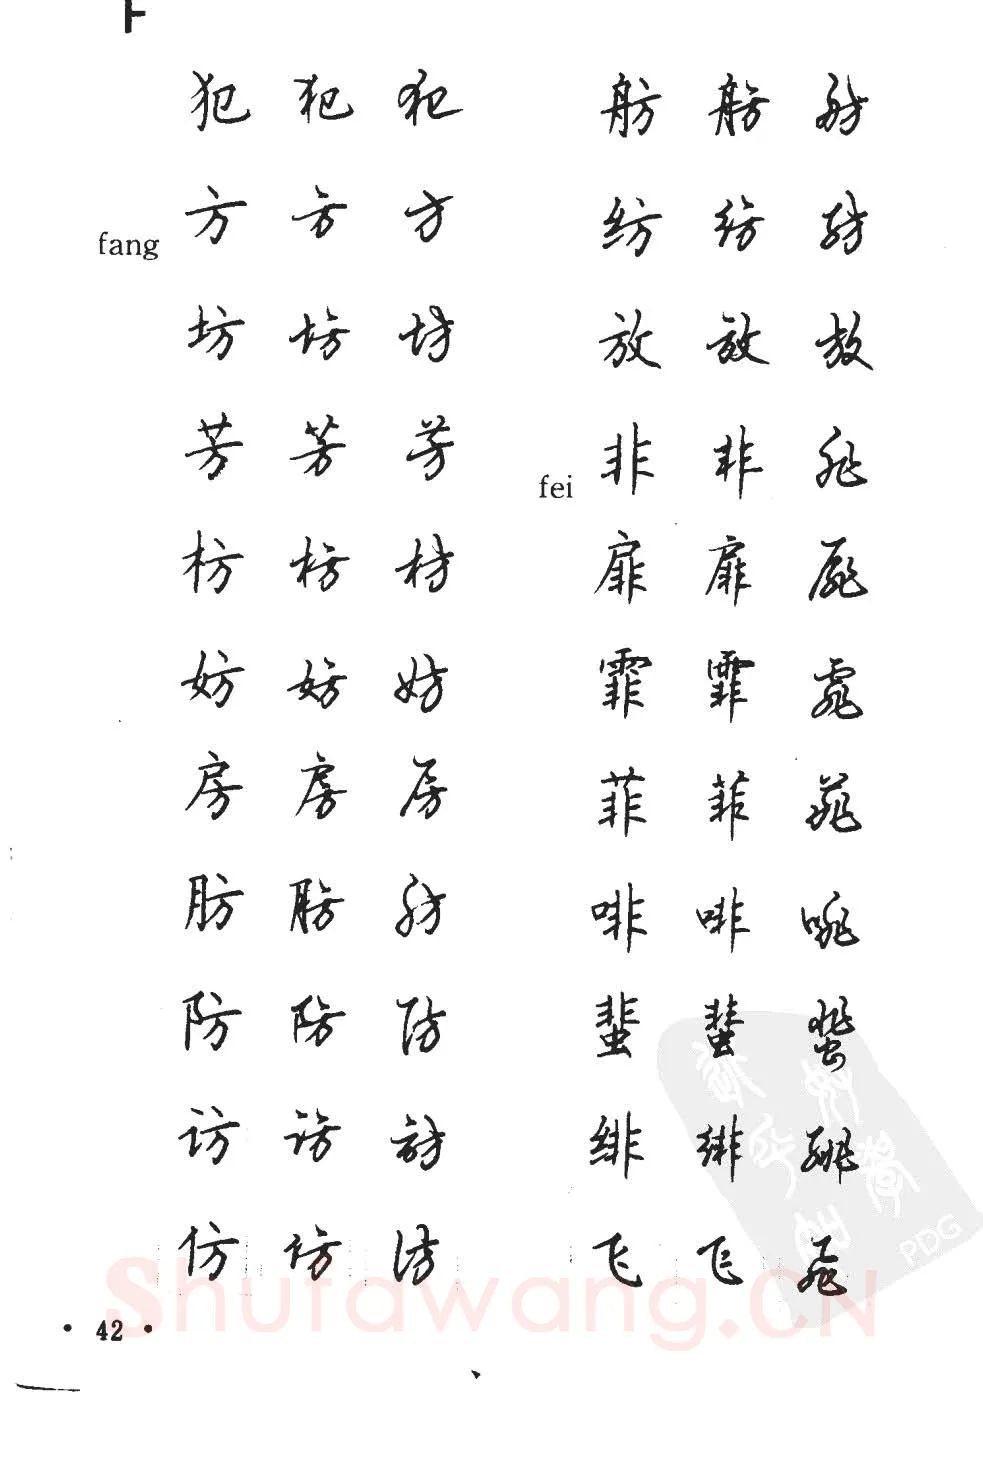 F
犯 犯 犯
fang 方 方 方
坊 坊 坊
芳 芳 芳
枋 枋 枋
妨 妨 妨
房 房 房
肪 肪 肪
防 防 防
访 访 访
仿 仿 仿
舫 舫 舫
纺 纺 纺
放 放 放
fei 非 非 非
扉 扉 扉
霏 霏 霏
菲 菲 菲
啡 啡 啡
蜚 蜚 蜚
绯 绯 绯
飞 飞 飞
• 42 •
Shufawang.CN
PDG